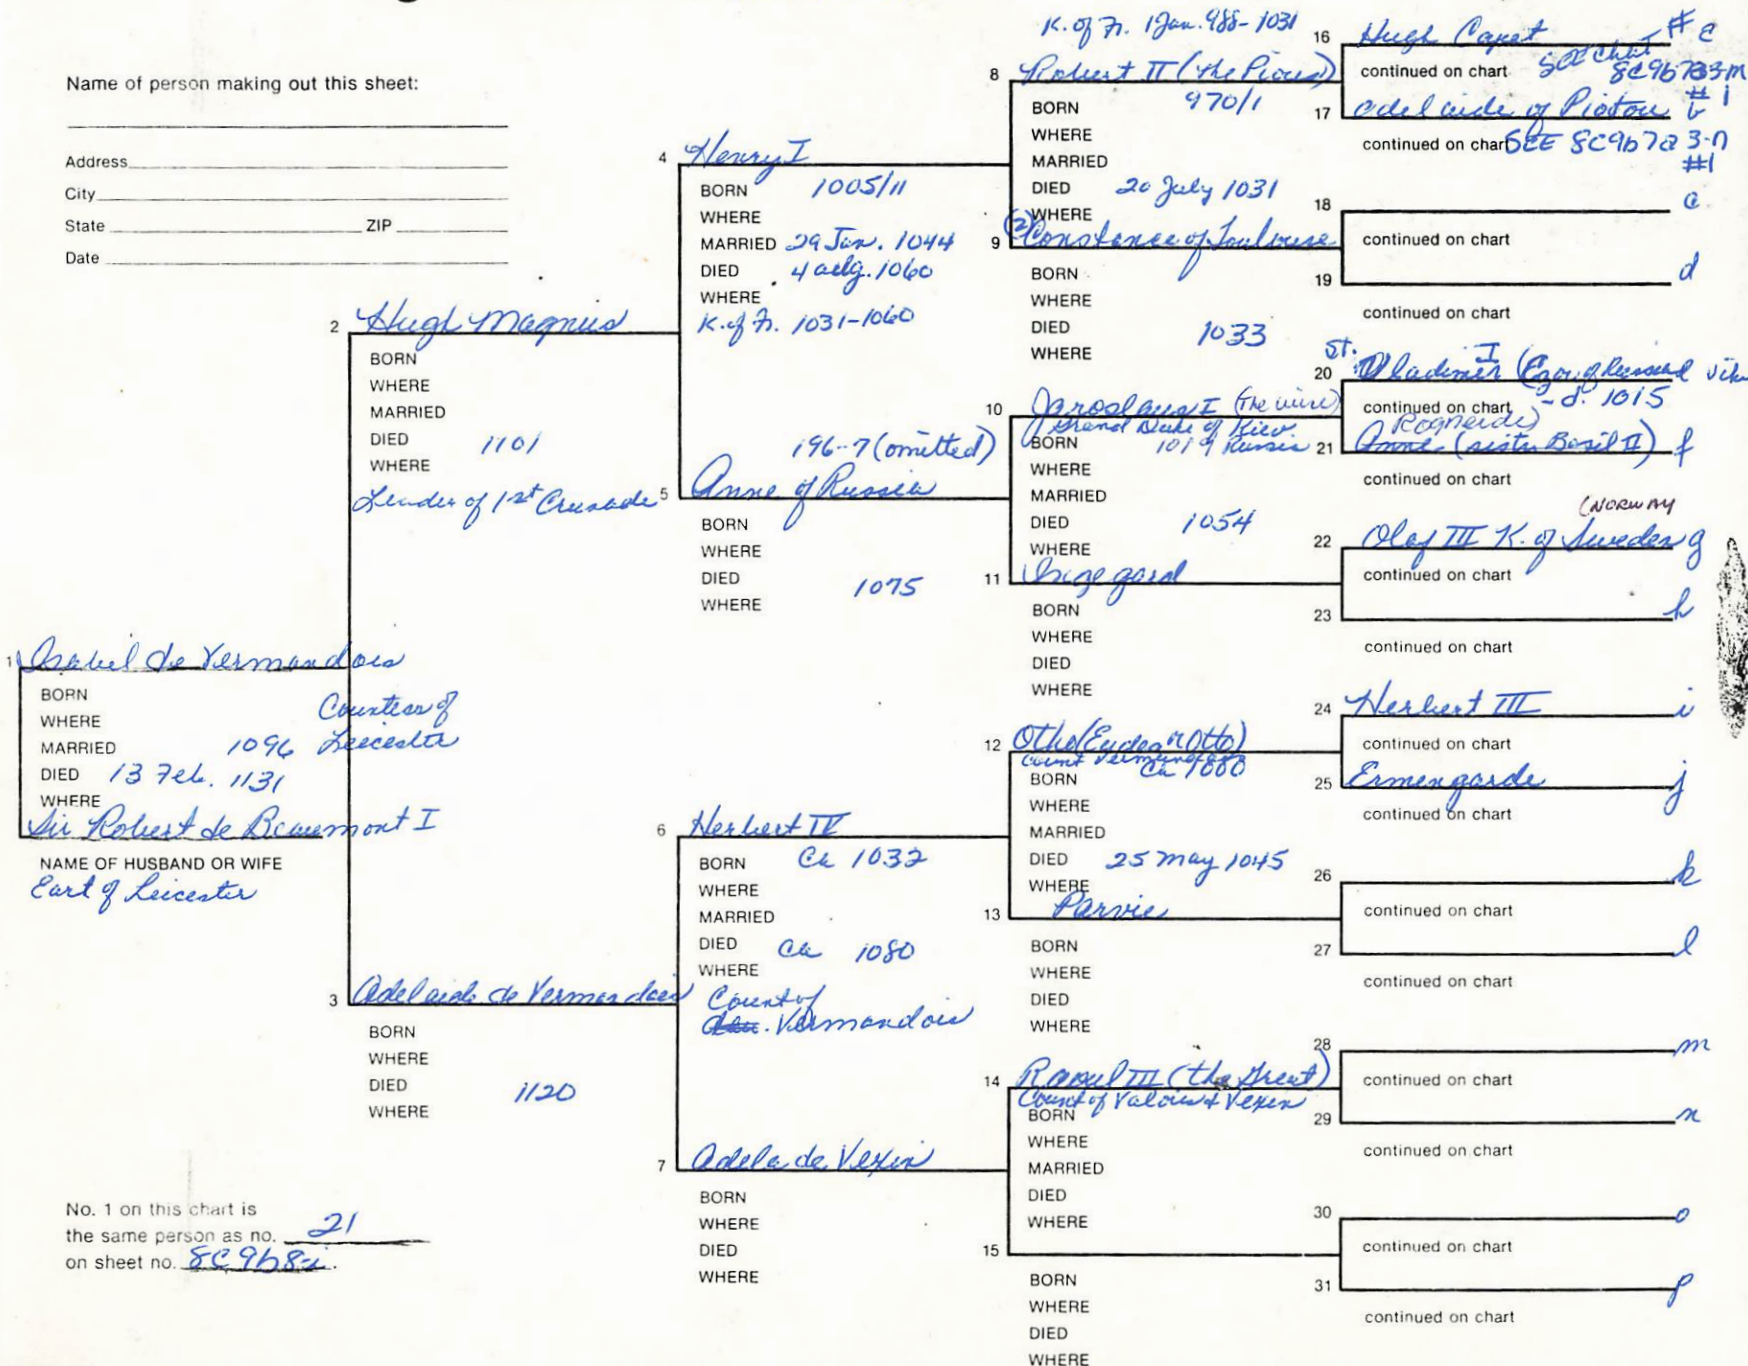 Name of person making out this sheet:
Address
City
State ZIP
Date
1 Isabel de Vermandois
BORN
WHERE
MARRIED 1096
DIED 13 Feb. 1131
WHERE
Countess of
Leicester
Sir Robert de Beaumont I
NAME OF HUSBAND OR WIFE
Earl of Leicester
2 Hugh Magnus
BORN
WHERE
MARRIED
DIED 1101
WHERE
Leader of 1st Crusade
3 Adelaide de Vermandois
BORN
WHERE
DIED 1120
WHERE
4 Henry I
BORN 1005/11
WHERE
MARRIED 29 Jan. 1044
DIED 4 aug. 1060
WHERE
K. of Fr. 1031-1060
196-7 (omitted)
5 Anne of Russia
BORN
WHERE
DIED 1075
WHERE
6 Herbert IV
BORN Ca 1032
WHERE
MARRIED
DIED Ca 1080
WHERE
Count of
Vermandois
7 Adela de Vexin
BORN
WHERE
DIED
WHERE
K. of Fr. 1 Jan. 988-1031
8 Robert II (the Pious)
BORN 970/1
WHERE
MARRIED
DIED 20 July 1031
WHERE
9 (2) Constance of Toulouse
BORN
WHERE
DIED 1033
WHERE
10 Jaroslaus I (the wise)
Grand Duke of Kiev
BORN 1019 Russia
WHERE
MARRIED
DIED 1054
WHERE
11 Ingegard
BORN
WHERE
DIED
WHERE
12 Otho (Eudes or Otto)
Count Vermandois
BORN Ca 1000
WHERE
MARRIED
DIED 25 May 1045
WHERE
13 Parvie
BORN
WHERE
DIED
WHERE
14 Raoul III (the Great)
Count of Valois & Vexin
BORN
WHERE
MARRIED
DIED
WHERE
15
BORN
WHERE
DIED
WHERE
16 Hugh Capet
continued on chart See Chart
17 Adelaide of Piotou b
continued on chart SEE 8C9b7a 3-n
#1
18 c
continued on chart
19 d
continued on chart
20 St. Vladimir I
continued on chart - d. 1015
Rogneide
21 Anne (sister Basil II) f
continued on chart
(NORWAY
22 Olaf III K. of Sweden g
continued on chart
23 h
continued on chart
24 Herbert III i
continued on chart
25 Ermengarde j
continued on chart
26 k
continued on chart
27 l
continued on chart
28 m
continued on chart
29 n
continued on chart
30 o
continued on chart
31 p
continued on chart
No. 1 on this chart is
the same person as no. 21
on sheet no. 8C9b8-i.